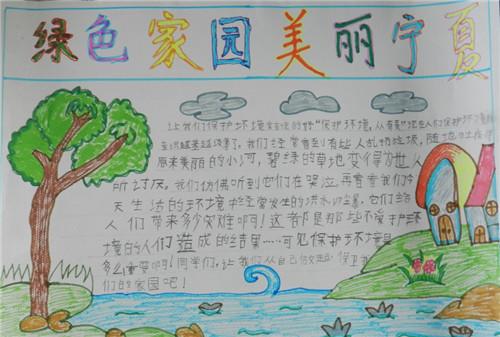 绿色家园美丽宁夏
让我们保护环境
保护环境,从
我们经常看到有些人乱扔垃圾,随地吐痰
原来美丽的小河,碧绿的草地变得为世人
所讨厌。我们仿佛听到它们在哭泣再看看我们今
天生活的环境中经常发生的洪水
它们给
人们带来多少灾难啊!这都是那些不爱护环
境的人们造成的结果……可见保护环境是
多么重要啊!同学们,让我们从自己做起,保卫
们的家园吧!